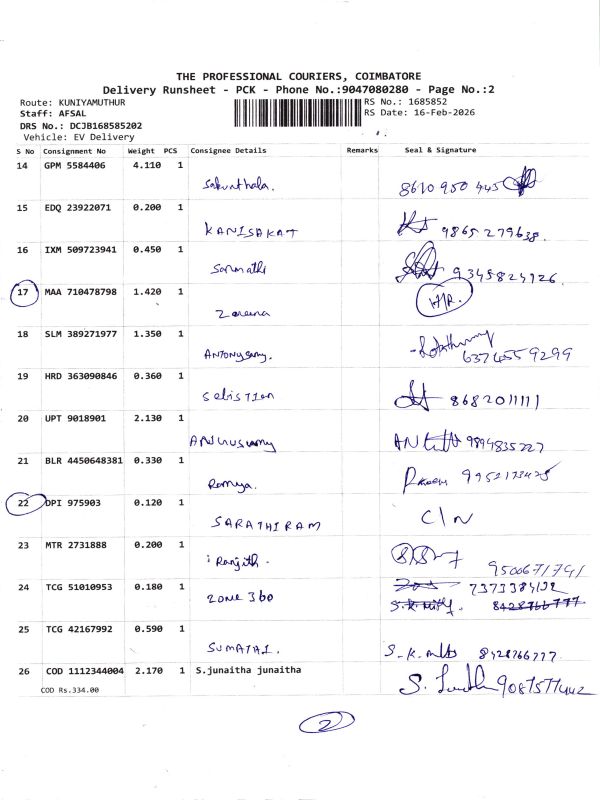 THE PROFESSIONAL COURIERS, COIMBATORE
Delivery Runsheet - PCK - Phone No.:9047080280 - Page No.:2
Route: KUNIYAMUTHUR RS No.: 1685852
Staff: AFSAL RS Date: 16-Feb-2026
DRS No.: DCJB168585202
Vehicle: EV Delivery
S No Consignment No Weight PCS Consignee Details Remarks Seal & Signature
14 GPM 5584406 4.110 1
Sakunthala. 8610 950 445
15 EDQ 23922071 0.200 1
KANISAKAT 9865279638.
16 IXM 509723941 0.450 1
9345824926
17 MAA 710478798 1.420 1
Zareena
18 SLM 389271977 1.350 1
ANTONYsamy. 6374559299
19 HRD 363090846 0.360 1
SebisTIen 8682011111
20 UPT 9018901 2.130 1
9894835227
21 BLR 4450648381 0.330 1
Ramya. 9952173425
22 DPI 975903 0.120 1
SARATHIRAM C/N
23 MTR 2731888 0.200 1
Ranjith. 9500671741
24 TCG 51010953 0.180 1 7373384132
ZONE 360 8428766777
25 TCG 42167992 0.590 1
SUMATHI. 8428766777.
26 COD 1112344004 2.170 1 S.junaitha junaitha
COD Rs.334.00 9087577442
2